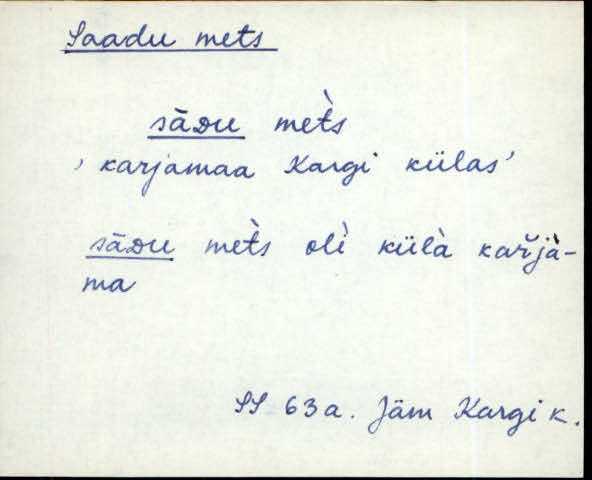 Saadu mets
sāDu met̀s
'karjamaa Kargi külas'
sāDu met̀s olì külà kar̆jà-
ma
SS 63a. Jäm Kargi k.